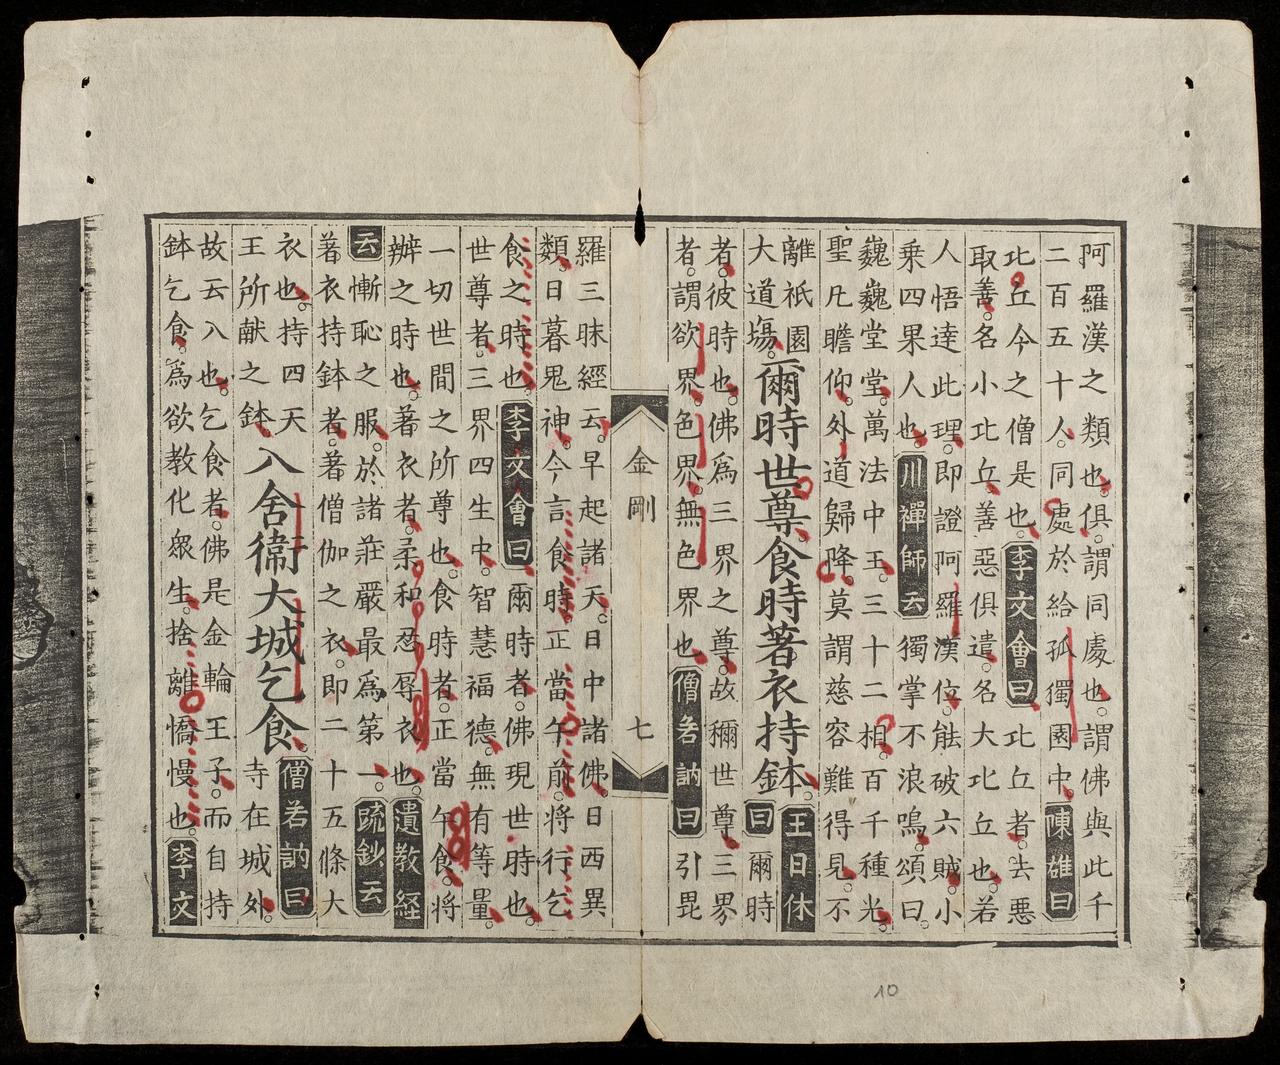 阿羅漢之類也。俱。謂同處也。謂佛與此千
二百五十人。同處於給孤獨園中。陳雄曰
比丘今之僧是也。李文會曰比丘者。去惡
取善。名小比丘。善惡俱遣。名大比丘也。若
人悟達此理。即證阿羅漢位。能破六賊。小
乘四果人也。川禪師云獨掌不浪鳴。頌曰。
巍巍堂堂。萬法中王。三十二相。百千種光。
聖凡瞻仰。外道歸降。莫謂慈容難得見。不
離祇園大道場。
爾時世尊食時著衣持鉢。王日休曰爾時
者。彼時也。佛為三界之尊。故稱世尊。三界
者。謂欲界。色界。無色界也。僧若訥曰引毘
金剛 七
羅三昧經云。早起諸天。日中諸佛。日西異
類。日暮鬼神。今言食時。正當午前。將行乞
食之時也。李文會曰爾時者。佛現世時也。
世尊者。三界四生中。智慧福德。無有等量。
一切世間之所尊也。食時者。正當午食。將
辦之時也。著衣者。柔和忍辱衣也。遺教經
云慚恥之服。於諸莊嚴最為第一。疏鈔云
著衣持鉢者。著僧伽之衣。即二十五條大
衣也。持四天王所献之鉢。
入舍衛大城乞食。僧若訥曰寺在城外。
故云入也。乞食者。佛是金輪王子。而自持
鉢乞食。為欲教化眾生。捨離憍慢也。李文
10